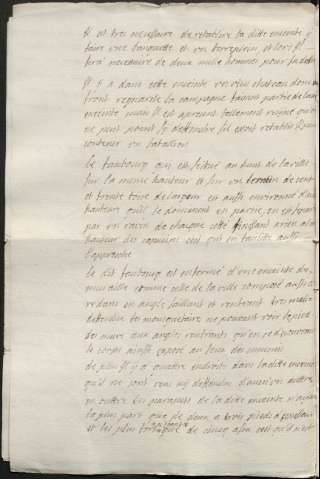 Il est tres necessaire de retablire la ditte enceinte y
faire une banquette et un terreplein, et lors il
sera necessaire de deux mille hommes pour la deffendre
Il y a dans cette enceinte un vieu chateau dont un
front regarde la campagne faisant partie de la
enceinte mais il est apresent tellement ruiné qu'il
ne peut point se deffendre s'il etoit retabli il peut
contenir un bataillon
Le faubourg qui est situé au haut de la ville
sur la meme hauteur et sur un terrain de cent
et trente toise de largeur est aussi environné d'une
hauteur qui le dominent en partie, en est separé
par un ravin de chaque costé
hauteur des capucins est qui en facilite aussi
l'approche
Le dit faubourg est enfermé d'une enceinte de
muraille comme celle de la ville composé aussi de
redans en angle saillant et rentrant tres mal
deffendue les mousquetaire ne pouvant voir le pied
des murs aux angles rentrants qu'en se decouvrant
le corps ainsy exposé au feu des ennemis
de plus il y a quatre endroits dans la ditte enceinte
qui ne sont veus ny deffendus d'aucun autre
en outre les parapets de la ditte enceinte n'ayant
la plus part que de deux a trois pieds d'epaisseur
et les plus fort de cinq a six est qu'il n'est